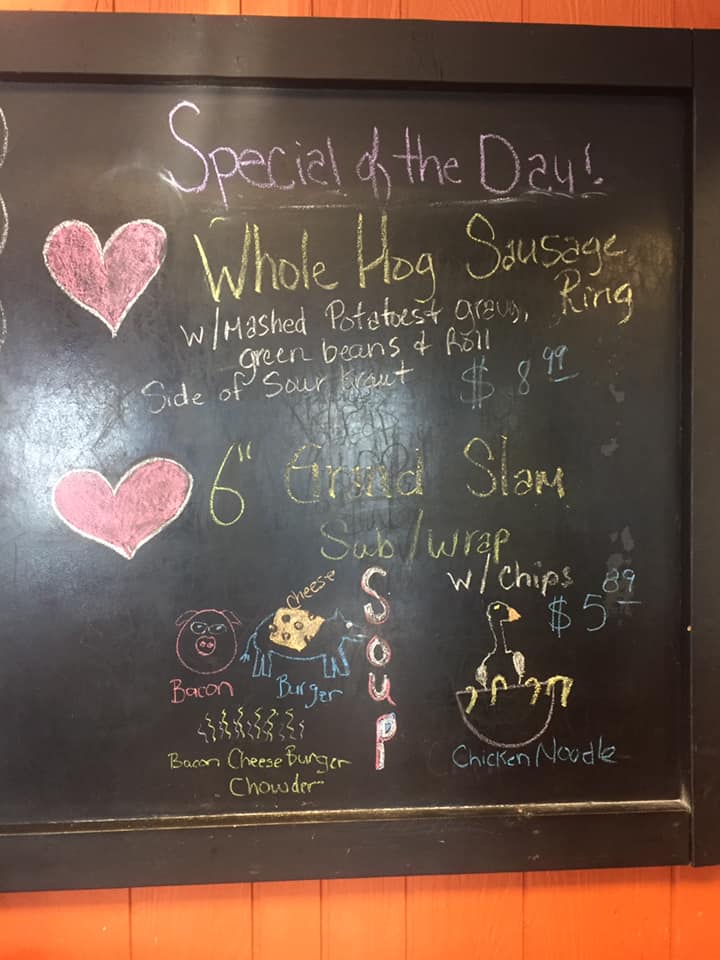 Special of the Day!
Whole Hog Sausage Ring
w/Mashed Potatoes & gravy,
green beans & Roll
Side of Sour kraut $8.99
6" Grand Slam
Sub/wrap
w/chips
$5.89
Soup
Cheese
Bacon Burger
Bacon Cheese Burger
Chowder
Chicken Noodle